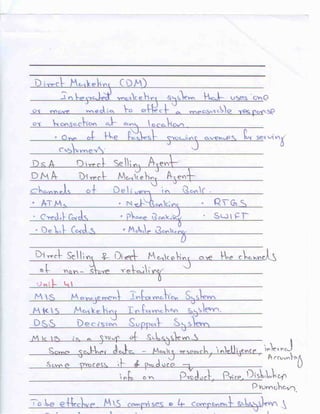 Direct Marketing (DM)
Integrated marketing system that uses one
or more media to affect a measurable response
or transaction at any location.
• One of the fastest growing avenues for serving
customers
DSA Direct Selling Agent
DMA Direct Marketing Agent
channels of Delivery in Bank.
• ATMs • Net Banking • RTGS
• Credit Cards • Phone Banking • SWIFT
• Debit Cards • Mobile Banking
Direct Selling & Direct Marketing are the channels
of non-store retailing
Unit VI
MIS Management Information System
MKIS Marketing Information System
DSS Decision Support System
MKIS is a group of Subsystems
Some gather data - Marktg research, intelligence, internal Accounting
Some process it & produce
info on Product, Price, Distribution
Promotion.
To be effective MIS comprises of 4 component subsystems